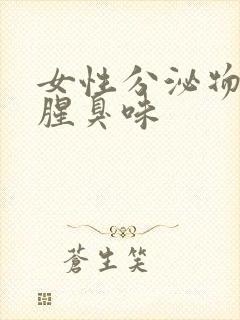 女性分泌物
腥臭味
蒼生笑